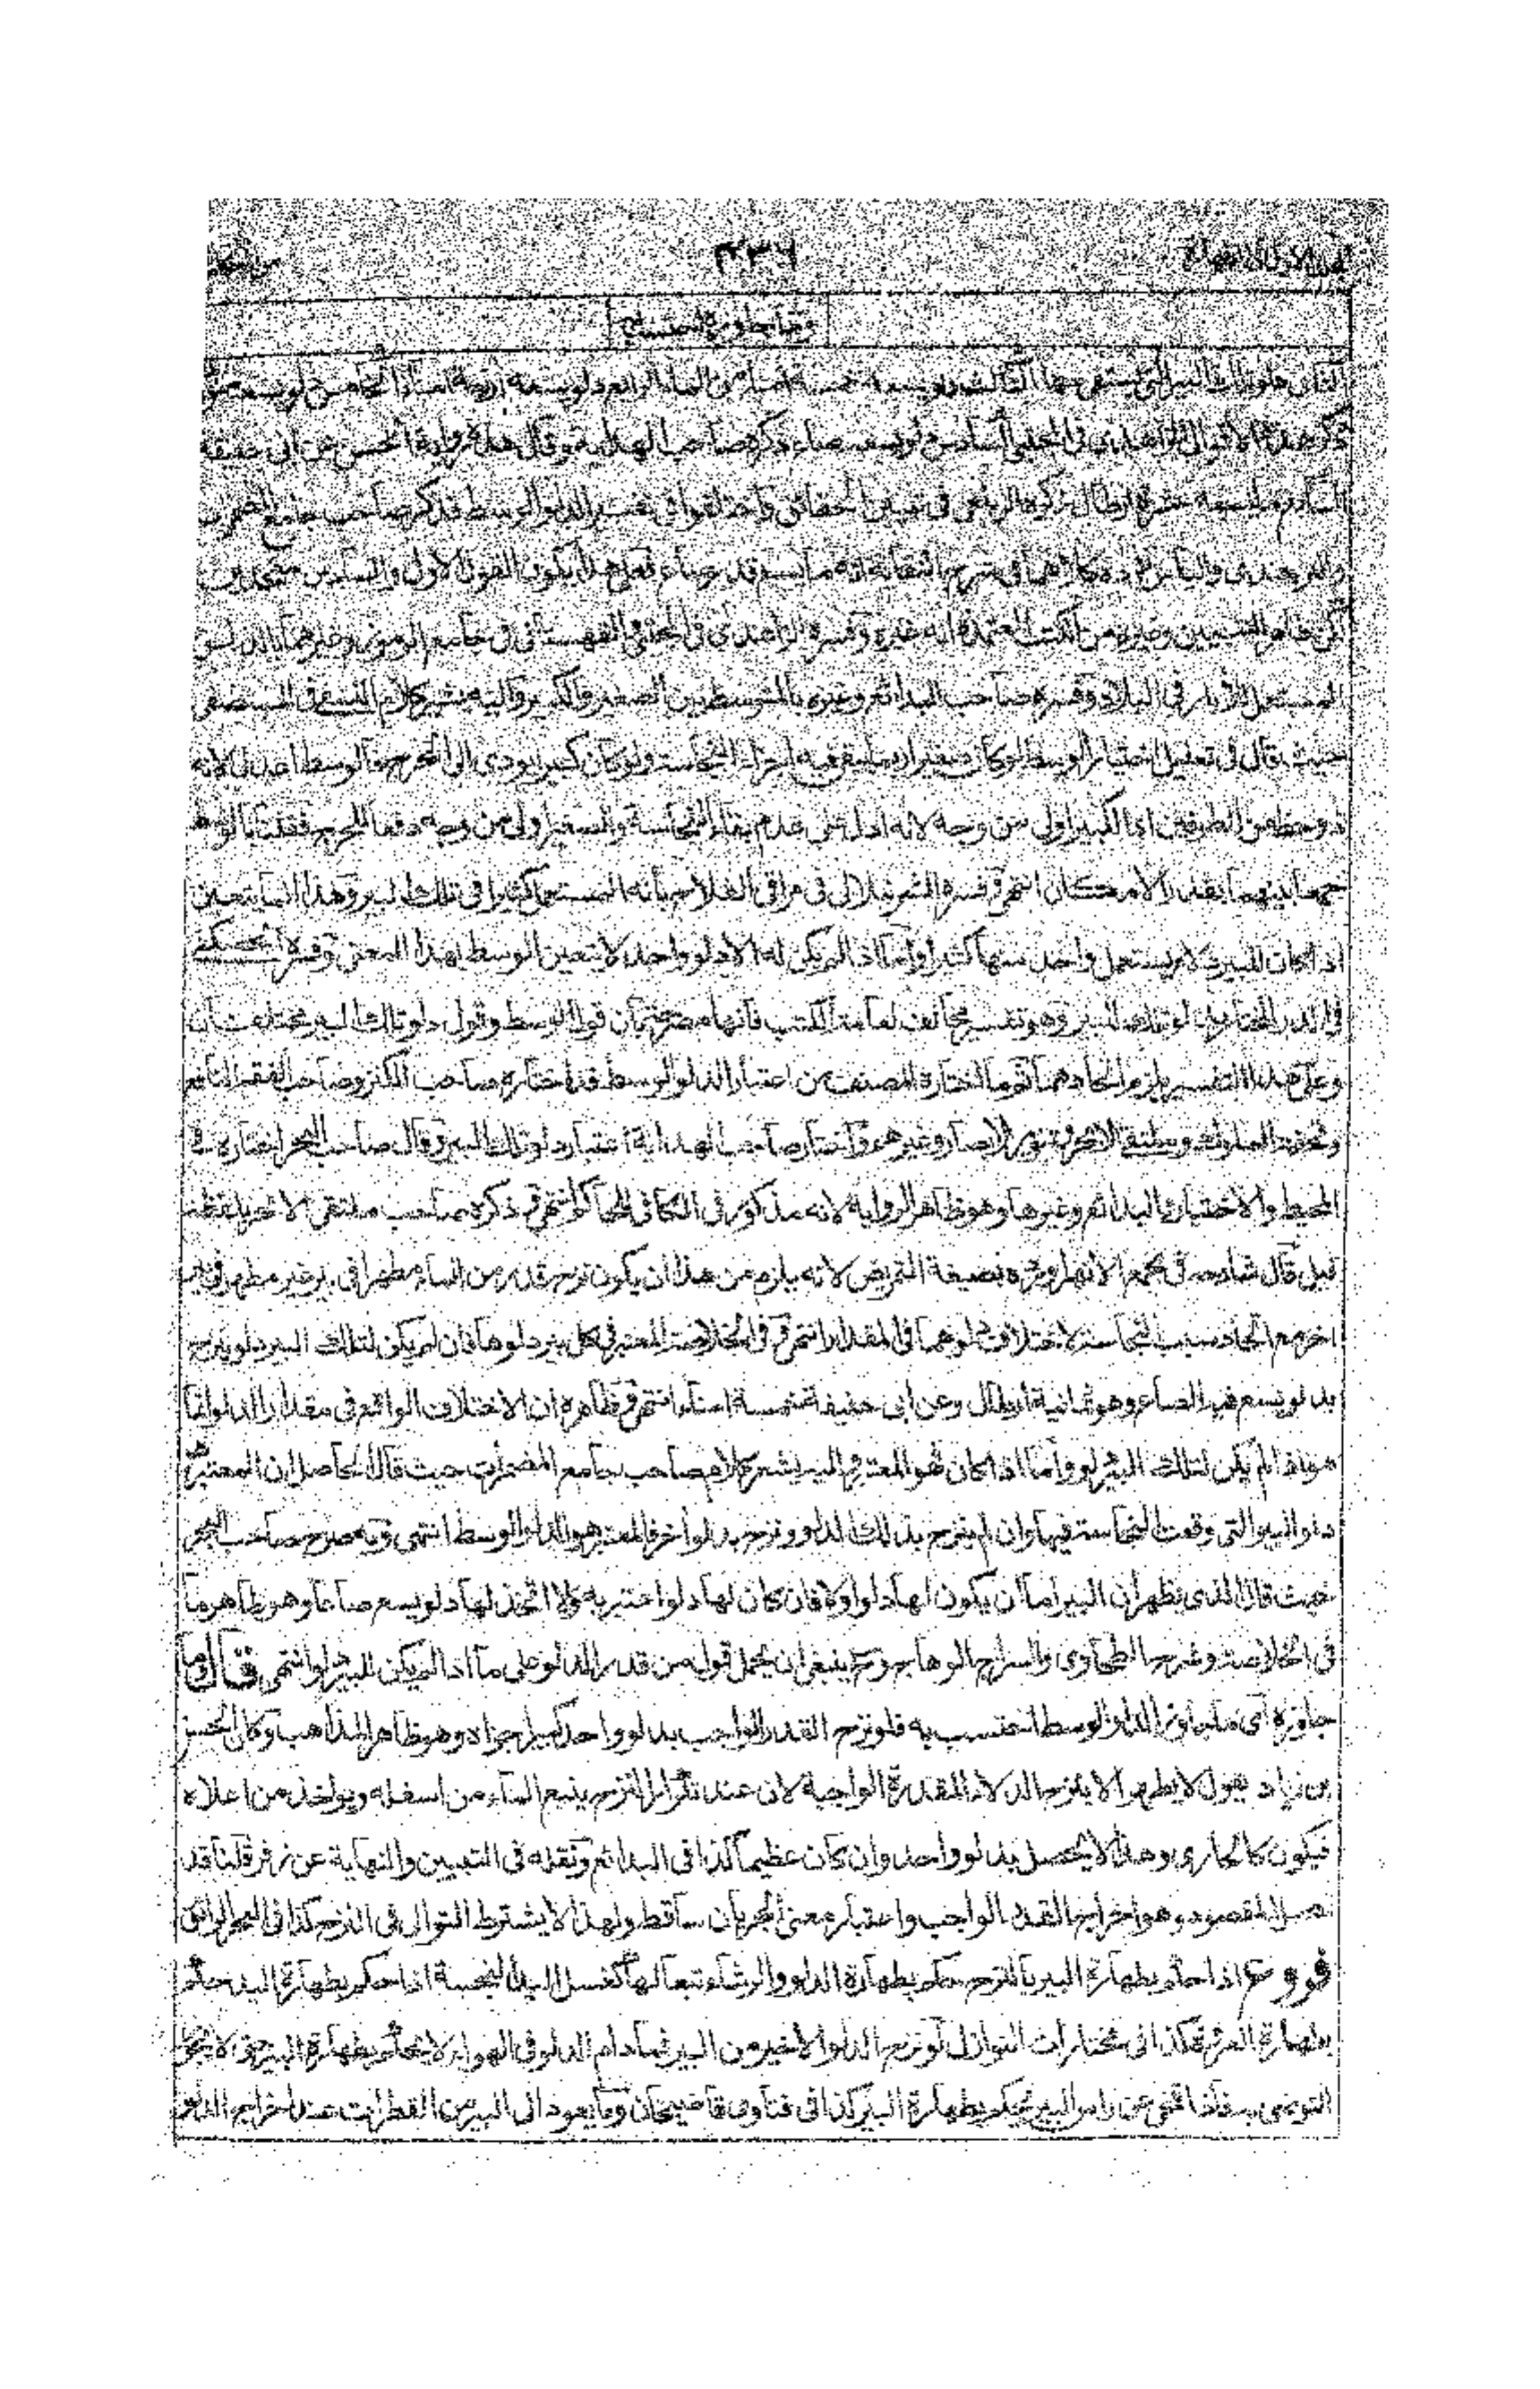 ٤٣٧
وما جاوزه احتسب به
الثاني دلو تلك البير التي يستقى بها الثالث دلو يسعه خمسة امناء من الماء الرابع دلو يسعه اربعة امناء الخامس دلو يسعه
ذكر هذه الاقوال الزاهدي في المجتبى السادس دلو يسعه صاع ذكره صاحب الهداية وقال هذه رواية الحسن عن ابي حنيفة
السابع ما يسعه عشرة ارطال ذكره الزيلعي في تبيين الحقائق واختلفوا في تفسير الدلو الوسط فذكر صاحب جامع المضمرات
والبرجندي والياس زاده كلاهما في شرح النقاية انه ما يسع قدر صاع فعلى هذا يكون القول الاول والسادس متحدين
لكن ظاهر التبيين وغيره من الكتب المعتمدة انه غيره وفسره الزاهدي في المجتبى القهستاني في جامع الرموز وغيرهما بالدلو
المستعمل للآبار في البلاد وفسره صاحب البدائع وغيره بالمتوسط بين الصغير والكبير واليه يشير كلام النسفي في المستصفى
حيث قال في تعليل اختيار الوسط لو كان صغيرا ربما يبقى فيه اجزاء النجاسة ولو كان كبيرا يودي الى الحرج والوسط اعدل لانه
ذو حظ من الطرفين اذ الكبير اولى من وجه لانه ادل على عدم بقاء النجاسة والصغير اولى من وجه دفعا للحرج فقلنا بالوسط
جمعا بينهما بقدر الامكان انتهى وفسره الشرنبلالى في مراقي الفلاح بأنه المستعمل كثيرا في تلك البير وهذا انما يتعين
اذا كان للبير دلاء يستعمل واحد منها كثيرا واما اذا لم يكن له الا دلو واحد لا يتعين الوسط بهذا المعنى وفسره الحصكفي
في الدر المختار بدلو تلك البير وهو تفسير مخالف لعامة الكتب فانها مصرحة بأن قول الوسط وقول دلو تلك البير مختلفتان
وعلى هذا التفسير يلزم اتحادهما ثم ما اختاره المصنف من اعتبار الدلو الوسط قد اختاره صاحب الكنز وصاحب الفقه النافع
وتحفة الملوك وملتقى الابحر وتنوير الابصار وغيرهم واختار صاحب الهداية اعتبار دلو تلك البير وقال صاحب البحر اختاره في
المحيط والاختيار والبدائع وغيرها وهو ظاهر الرواية لانه مذكور في الكافي للحاكم انتهى وذكره صاحب ملتقى الابحر بلفظ
قيل قال شارحه في مجمع الانهر وغيره بصيغة التمريض لانه يلزم من هذا ان يكون نزح قدر من الماء مطهرا في بير غير مطهر في بير
اخرى مع اتحاد سبب النجاسة لاختلاف دلوهما في المقدار انتهى وفي الخلاصة المعتبر في كل بير دلوها فان لم يكن لتلك البير دلو ينزح
بدلو يسع فيه الصاع وهو ثمانية ارطال وعن ابي حنيفة خمسة امناء انتهى وظاهره ان الاختلاف الواقع في مقدار الدلو انما
هو اذا لم يكن لتلك البئر دلو واما اذا كان فهو المعتبر واليه يشير كلام صاحب جامع المضمرات حيث قال الحاصل ان المعتبر هو
دلو البير التي وقعت النجاسة فيها وان لم ينزح بذلك الدلو ونزح بدلو اخر فالمعتبر هو الدلو الوسط انتهى وبه صرح صاحب البحر
حيث قال الذي يظهر ان البير اما ان يكون لها دلو اولا فان كان لها دلو اعتبر به والا اتخذ لها دلو يسع صاعا وهو ظاهر ما
في الخلاصة وشرح الطحاوي والسراج الوهاج وح ينبغي ان يحمل قول من قدر الدلو على ما اذا لم يكن للبير دلو انتهى قال وما
جاوزه اى ما جاوز الدلو الوسط احتسب به فلو نزح القدر الواجب بدلو واحد كبير اجزاه وهو ظاهر المذاهب وكان الحسن
بن زياد يقول لا يطهر الا بنزح الدلاء المقدرة الواجبة لان عند تكرار النزح ينبع الماء من اسفله ويؤخذ من اعلاه
فيكون كالجاري وهذا لا يحصل بدلو واحد وان كان عظيما كذا في البدائع ونقله في التبيين والنهاية عن زفر قلنا قد
حصل المقصود وهو اخراج القدر الواجب واعتبار معنى الجريان ساقط ولهذا لا يشترط التوالى في النزح كذا في البحر الرائق
فروع اذا حكم بطهارة البير بالنزح حكم بطهارة الدلو والرشاء تبعا لها كغسل اليد النجسة اذا حكم بطهارة اليد حكم
بطهارة العروة كذا في مختارات النوازل لو نزح الدلو الاخير من البير فما دام الدلو في الهواء لا يحكم بطهارة البير حتى لا يجوز
التوضى به فاذا نحى عن راس البير يحكم بطهارة البير كذا في فتاوى قاضيخان وما يعود الى البير من القطرات عند اخراج الدلو